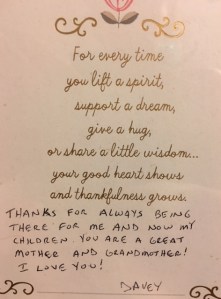 For every time
you lift a spirit,
support a dream,
give a hug,
or share a little wisdom...
your good heart shows
and thankfulness grows.
THANKS FOR ALWAYS BEING
THERE FOR ME AND NOW MY
CHILDREN. YOU ARE A GREAT
MOTHER AND GRANDMOTHER!
I LOVE YOU!
DAVEY